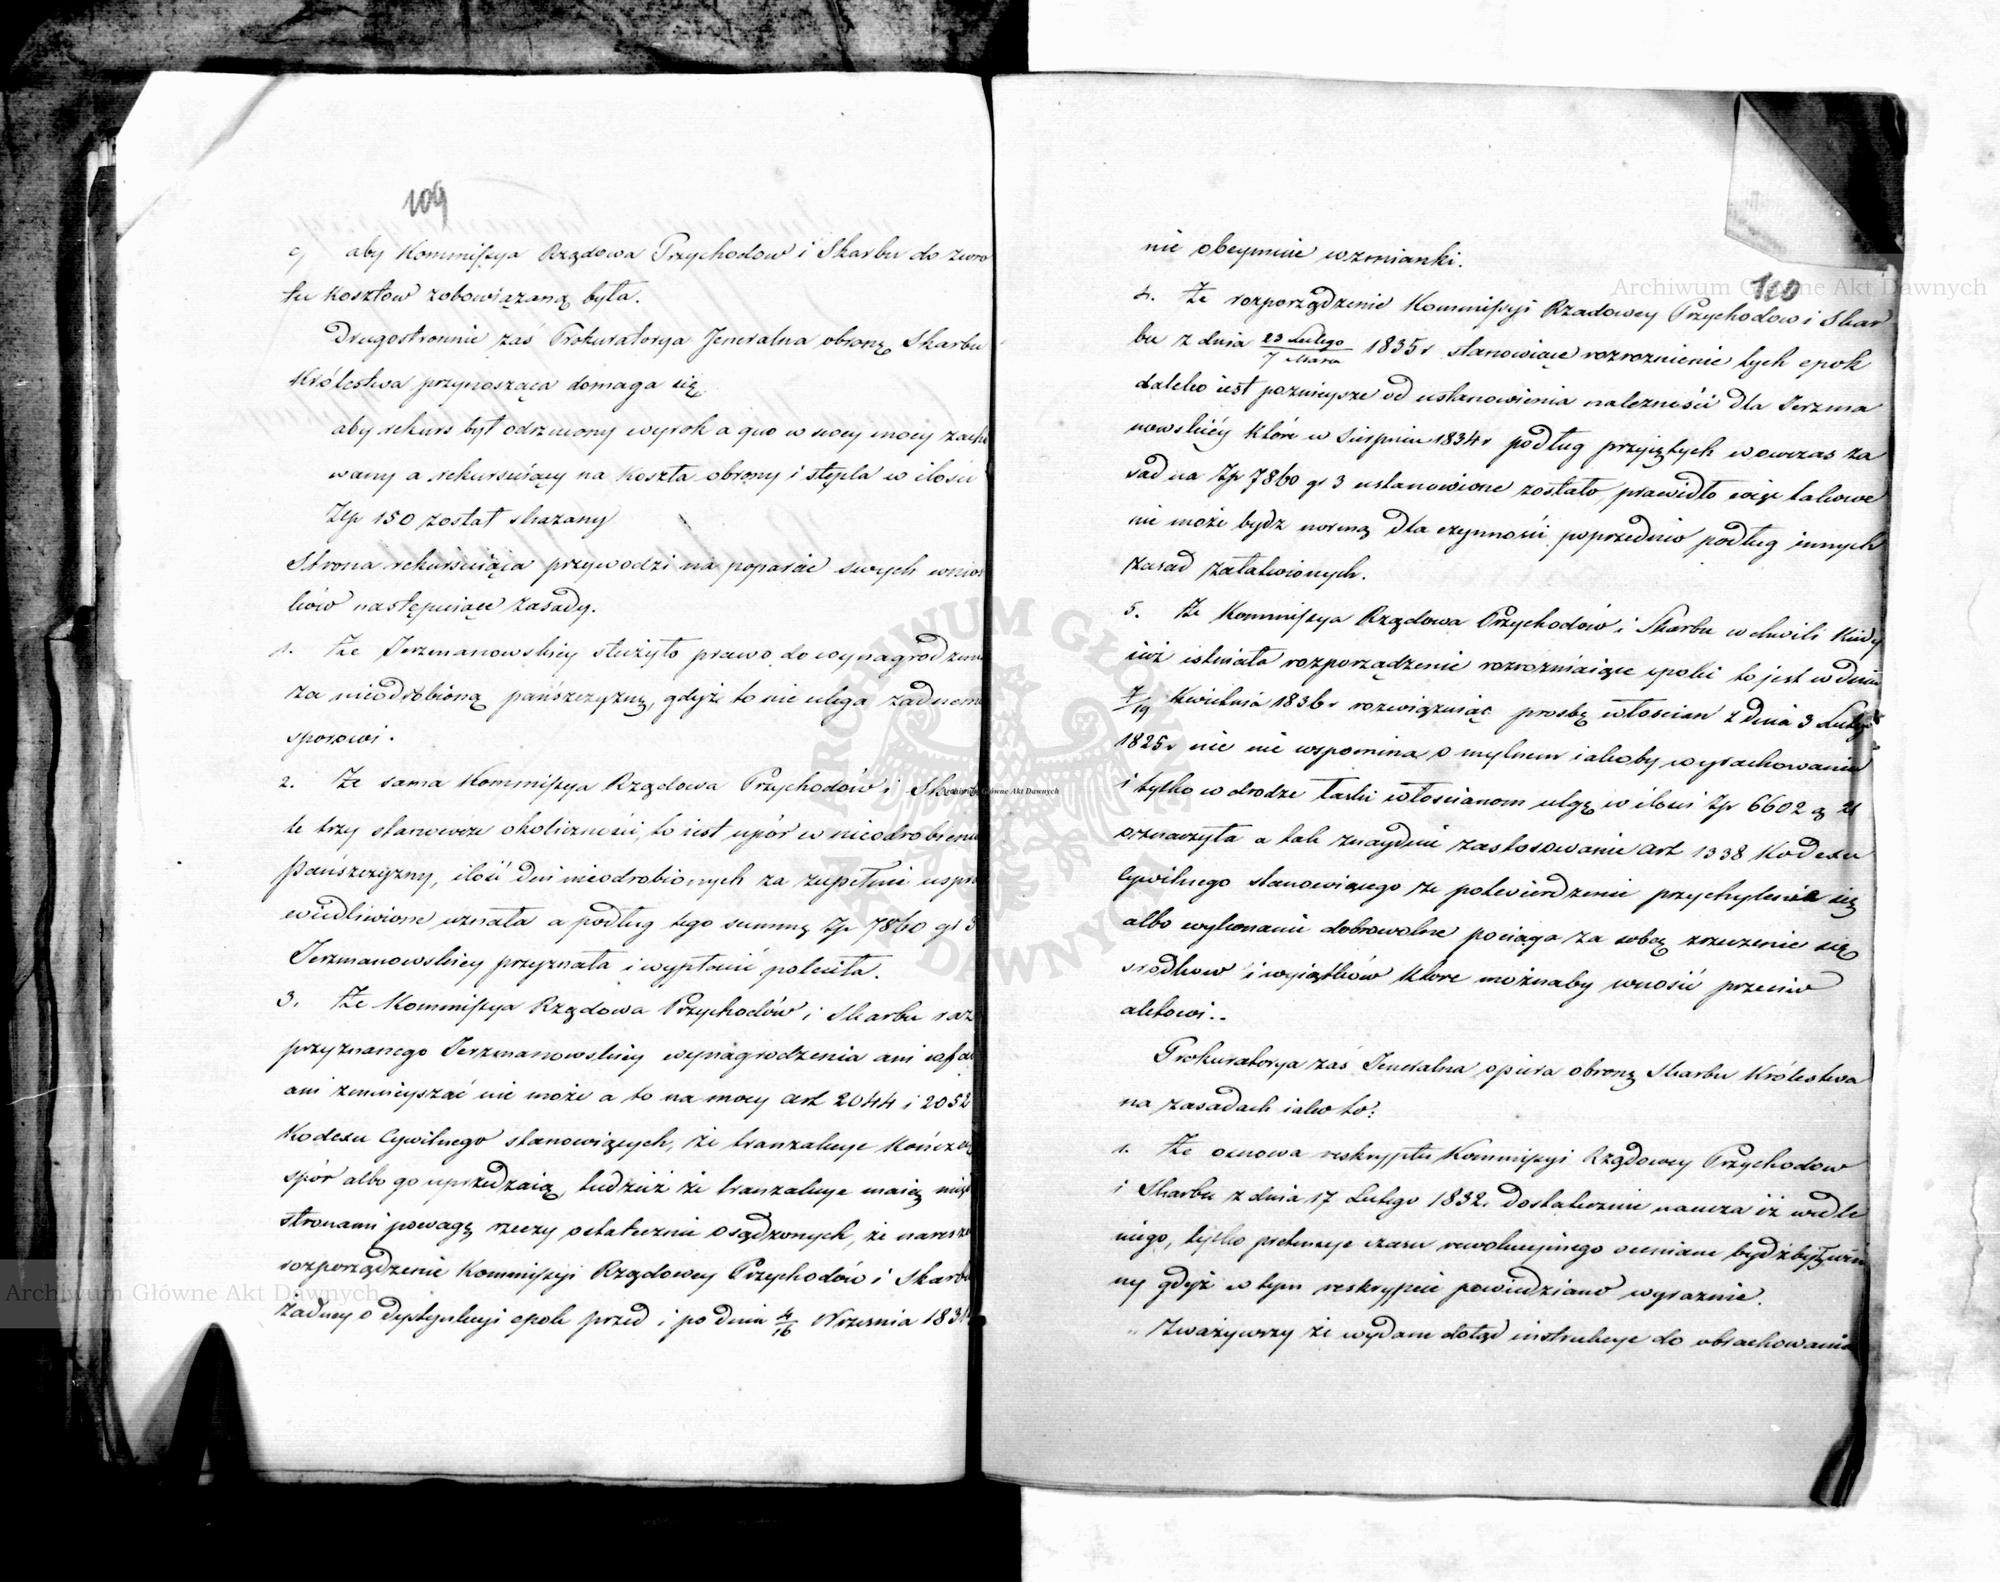 109
c) aby Kommissya Rządowa Przychodow i Skarbu do zwro
tu kosztow zobowiązaną była.
Drugostronnie zaś Prokuratorya Jeneralna obronę Skarbu
Królestwa przynosząca domaga się
aby rekurs był odrzucony wyrok a quo w swey mocy zacho
wany a rekursuiący na koszta obrony i stępla w ilości
Złp 150 został skazany
Strona rekursuiąca przywodzi na poparcie swych wnios
ków następuiące zasady.
1. Że Jerzmanowskiey służyło prawo do wynagrodzenia
za nieodrobioną pańszczyznę, gdyż to nie ulega żadnemu
sporowi.
2. Że sama Kommissya Rządowa Przychodów i Skarbu
te trzy stanowcze okoliczności, to iest upór w nieodrobieniu
Pańszczyzny, ilość dni nieodrobionych za zupełnie uspra
wiedliwione uznała a podług tego summę Zp 7860 gr 3
Jerzmanowskiey przyznała i wypłacić poleciła.
3. Że Kommissya Rządowa Przychodów i Skarbu raz
przyznanego Jerzmanowskiey wynagrodzenia ani cofać
ani zmnieyszać nie może a to na mocy art 2044 i 2052
Kodexu Cywilnego stanowiących, że tranzakcye kończą
spór albo go uprzedzaią, tudzież że tranzakcye maią między
stronami powagę rzeczy ostatecznie osądzonych, że nareszcie
rozporządzenie Kommissyi Rządowey Przychodów i Skarbu
żadney o dystynkcyi epok przed i po dniu 4/16 Września 1831
110
nie obeymuie wzmianki.
4. Że rozporządzenie Kommissyi Rządowey Przychodow i Skar
bu z dnia 23 Lutego/7 Marca 1835 r stanowiące rozroznienie tych epok
daleko iest poznieysze od ustanowienia należności dla Jerzma
nowskiéy które w Sierpniu 1834 r podług przyiętych wowczas za
sad na Zp 7860 gr 3 ustanowione zostało, prawidło więc takowe
nie może bydz normą dla czynności poprzednio podług innych
zasad załatwionych.
5. Że Kommissya Rządowa Przychodów i Skarbu w chwili kiedy
iuż istniało rozporządzenie rozrozniaiące epoki to jest w dniu
7/19 Kwietnia 1836 r rozwiązuiąc prosbę włoscian z dnia 3 Lutego
1825 r nic nie wspomina o mylnem iakoby wyrachowaniu
i tylko w drodze łaski włoscianom ulgę w ilości Zp 6602 g 21
oznaczyła a tak znayduie zastosowanie art 1338 Kodexu
Cywilnego stanowiącego że potwierdzenie przychylenie się
albo wykonanie dobrowolne pociąga za sobą zrzeczenie się
srodkow i wyiątków które możnaby wnosić przeciw
aktowi..
Prokuratorya zaś Jeneralna opiera obronę Skarbu Królestwa
na zasadach iako to:
1. Że osnowa reskryptu Kommissyi Rządowey Przychodow
i Skarbu z dnia 17 Lutego 1832 r dostatecznie naucza iż wedle
niego, tylko pretensye czasu rewolucyinego oceniane bydź były win
ny gdyż w tym reskrypcie powiedziano wyraznie.
„ Zważywszy że wydane dotąd instrukcye do obrachowania
Archiwum Główne Akt Dawnych
Archiwum Główne Akt Dawnych
Archiwum Główne Akt Dawnych
ARCHIWUM GŁÓWNE
AKT DAWNYCH